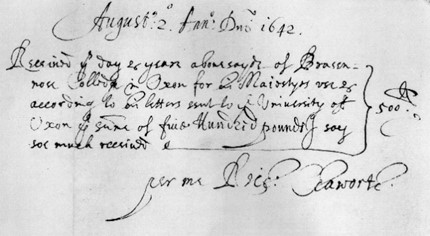 August: 2º. Anº. Dni 1642.
Received yᵉ day & yeare abovesayde of Brasen=
nose Colledg in Oxon for his Majestyes use
according to his letters sent to yᵉ University of
Oxon yᵉ summe of five Hundred pounds I say
soe much received
500
per me Rich: